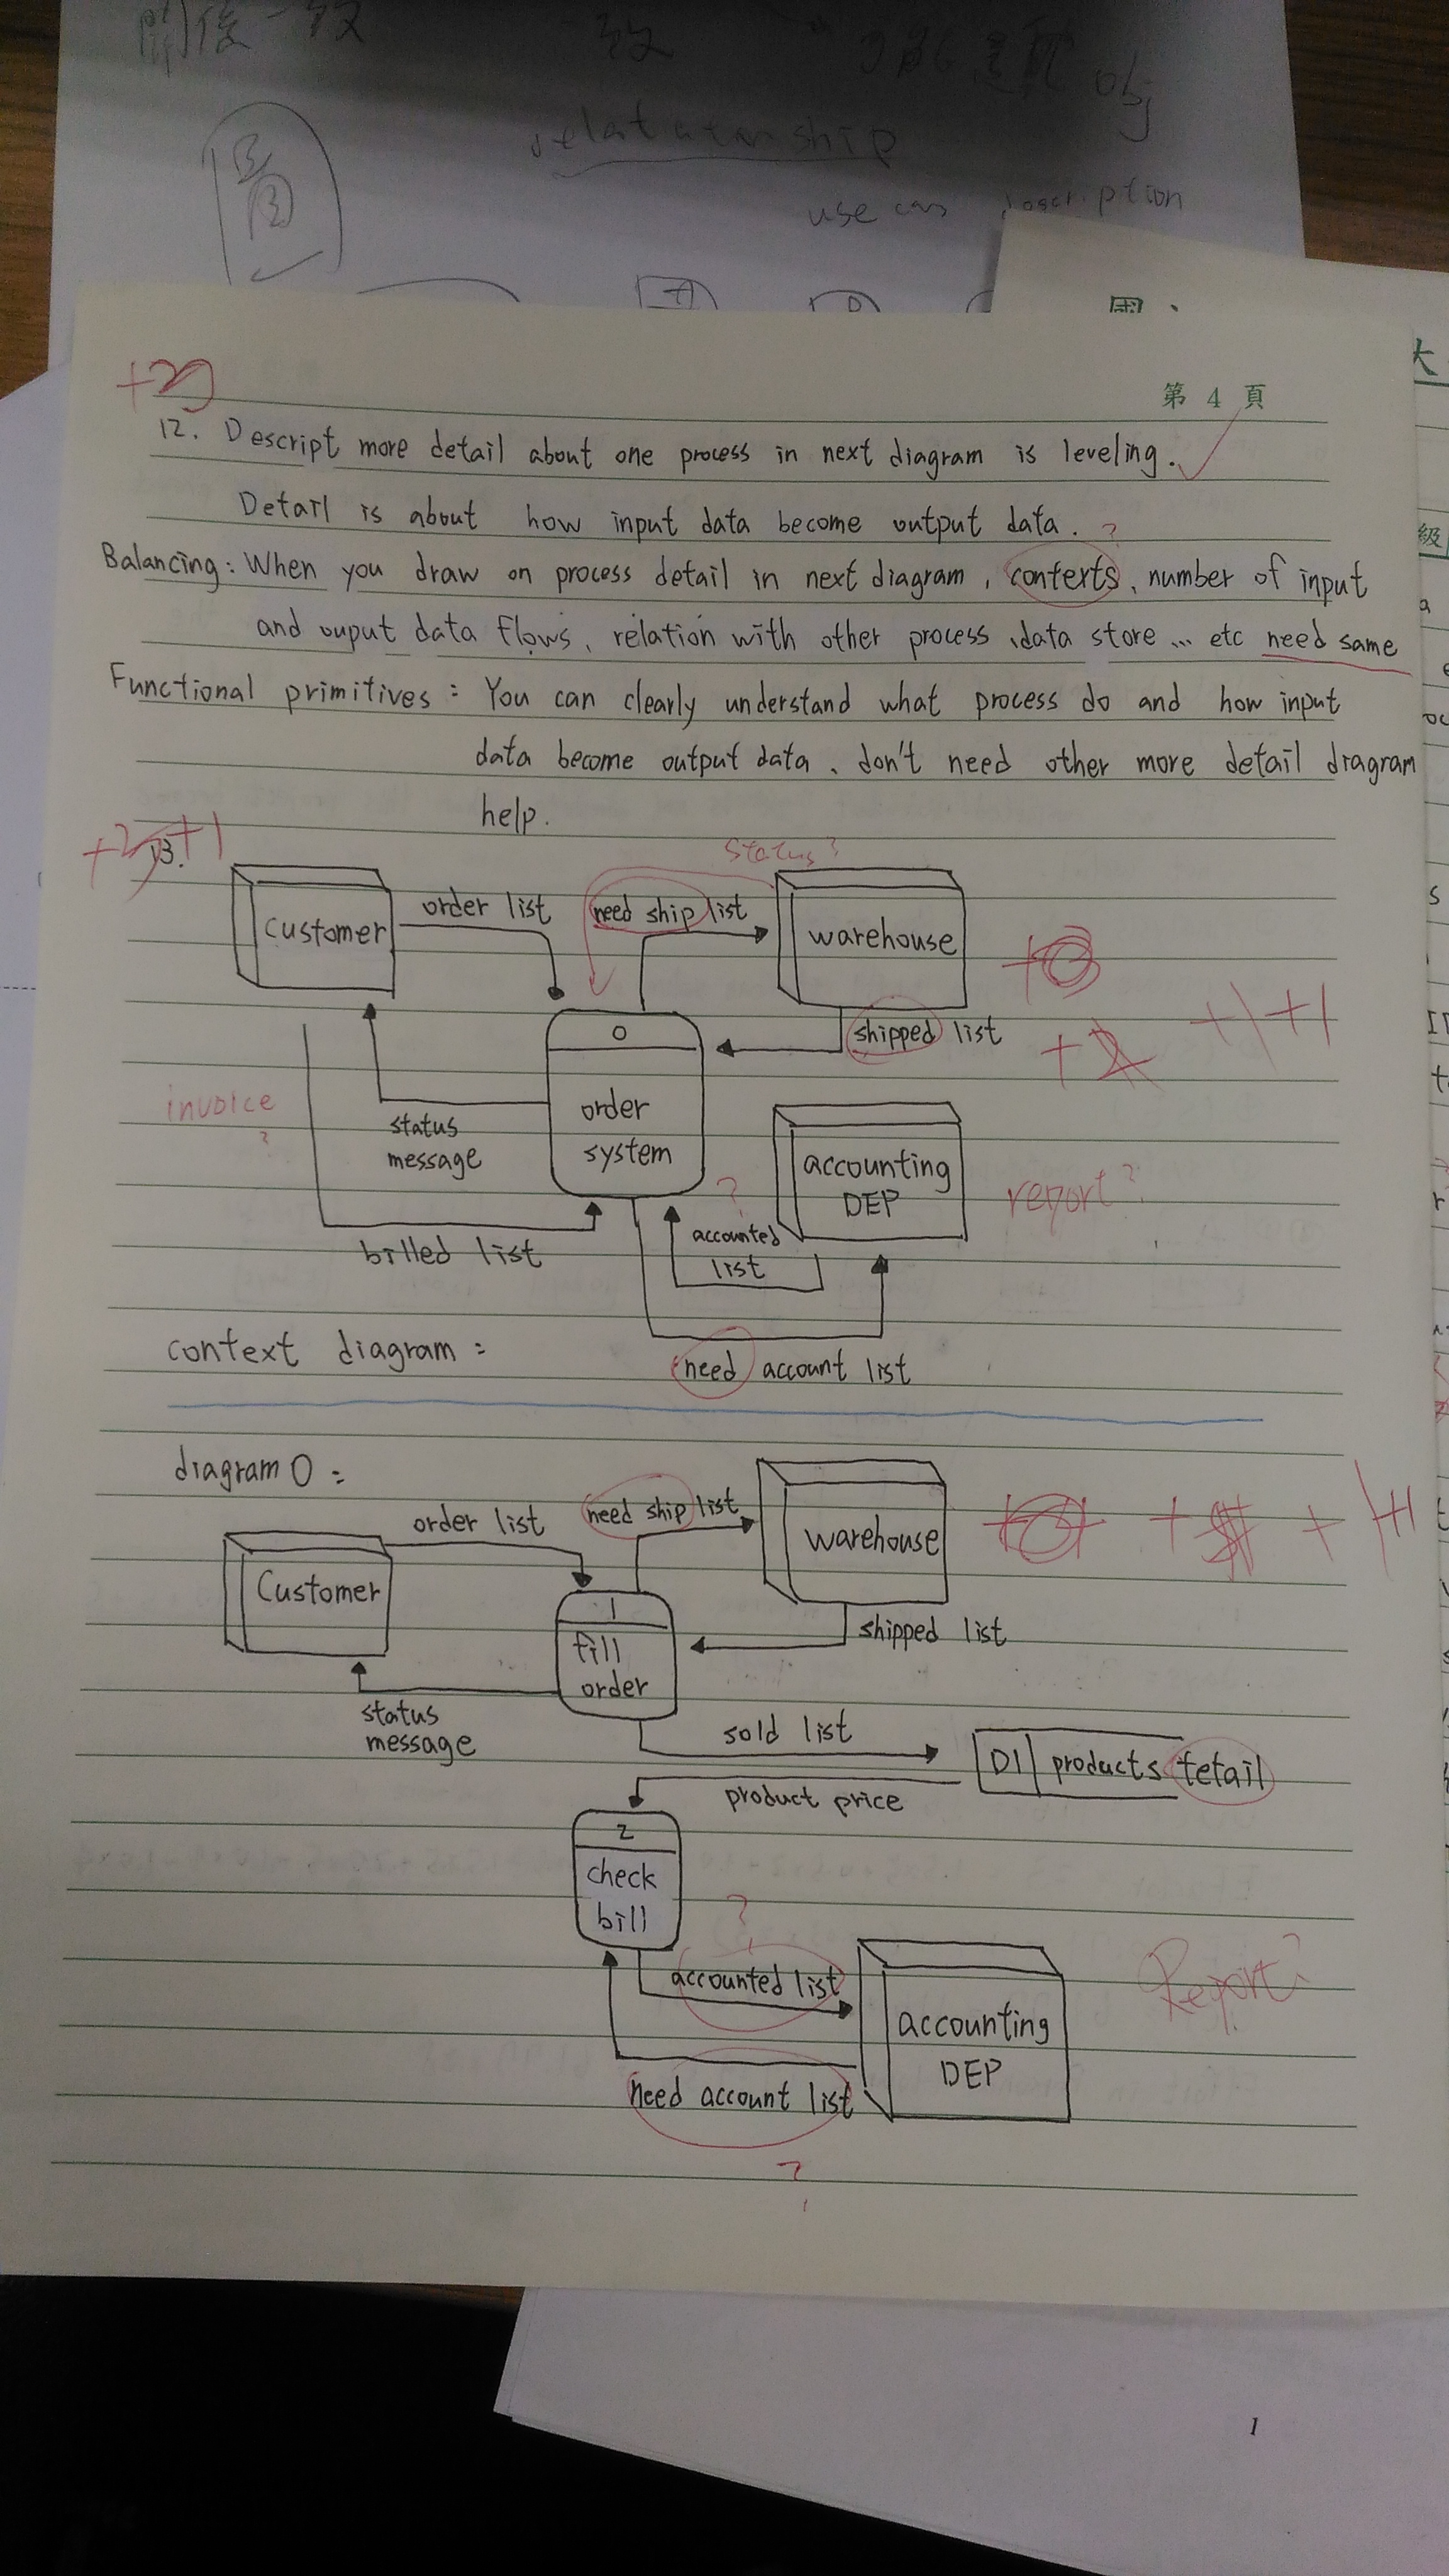 一致
obj
relationship
use
圖
國
第 4 頁
大
級
12. Descript more detail about one process in next diagram is leveling.
Detail is about how input data become output data. ?
Balancing: When you draw on process detail in next diagram, contexts, number of input
and ouput data flows, relation with other process, data store ... etc need same
Functional primitives: You can clearly understand what process do and how input
data become output data, don't need other more detail diagram
help.
+1
13.
status?
order list
need ship list
customer
warehouse
0
shipped list
+1 +1
invoice
?
status
message
order
system
accounting
DEP
report?
?
accounted
list
billed list
context diagram:
need account list
diagram 0:
order list
need ship list
Customer
warehouse
1
fill
order
shipped list
status
message
sold list
D1 products tetail
product price
2
check
bill
?
accounted list
Report?
accounting
DEP
need account list
?
1